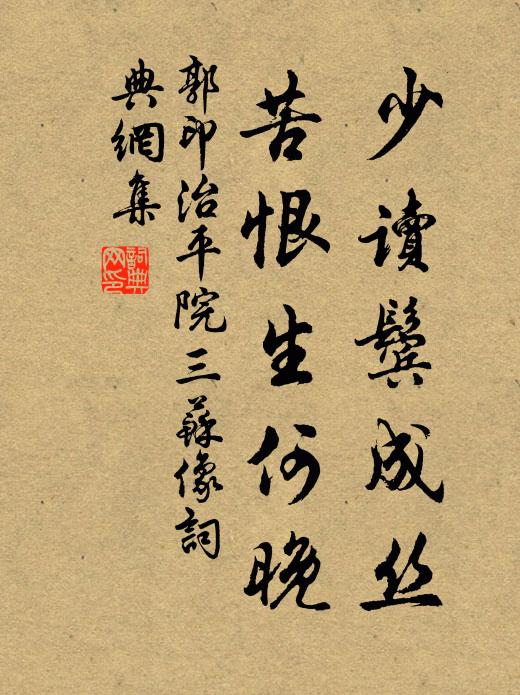 少讀鬓成丝
苦恨生何晚
郭印治平院三蘇像詞
典網集
詞典网印